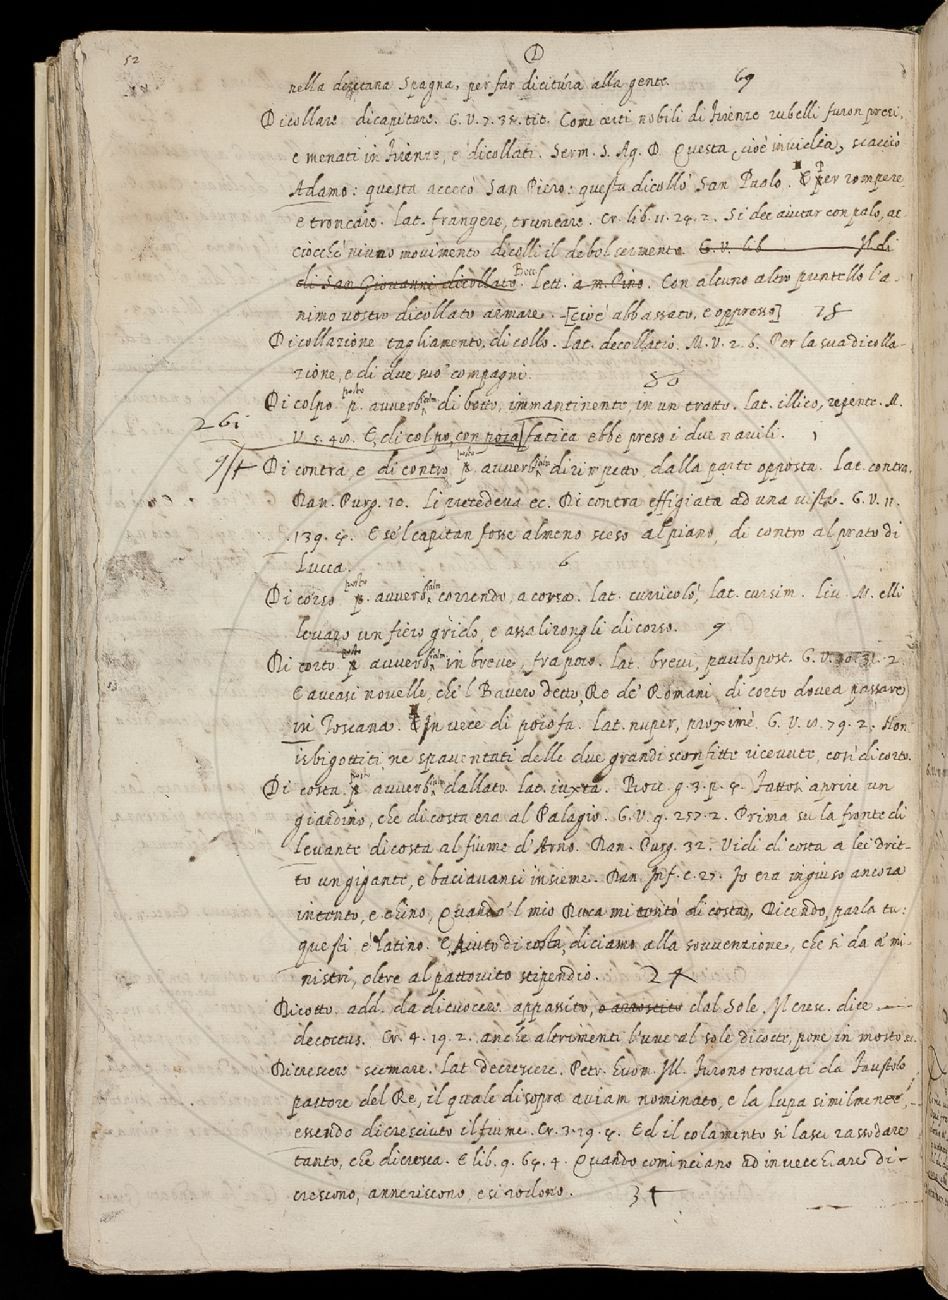 52
D
nella deretana Spagna, per far dicitura alla gente. 69
Dicollare dicapitare. G. V. 7. 35. tit. Come certi nobili di Firenze rubelli furon presi,
e menati in Firenze, e dicollati. Serm. S. Ag. D. Questa, cioè invidia, scacciò
Adamo: questa accecò San Piero: questa dicollò San Paolo. E per rompere,
e troncare. Lat. frangere, truncare. Cr. lib. 11. 24. 2. Si dee aiutar con palo, ac
ciocchè niuno movimento dicolli il debol sermento. G. V. lib Il di
di San Giovanni dicollato. Bocc. Lett. a m. Pino. Con alcuno altro puntello l'a-
nimo vostro dicollato armare. [cioè abbassato, e oppresso] 78
Dicollazione tagliamento, di collo. Lat. decollatio. M. V. 2. 6. Per la sua dicolla-
zione, e di due suo' compagni. 80
Di colpo posto p. avverb.alm. di botto, immantinente, in un tratto. Lat. illico, repente. M.
261
V. 5. 48. E, di colpo, con poca fatica ebbe preso i due navili. 1
9/4
Di contra, e di contro posto p. avverb.alm. dirimpetto, dalla parte opposta. Lat. contra.
Dan. Purg. 10. Li precedeva ec. Di contra effigiata ad una vista. G. V. 11.
139. 4. E se'l capitan fosse almeno sceso al piano, di contro al prato di
Lucca. 6
Di corso posto p. avverb.alm. correndo, a corsa. Lat. curriculò, Lat. cursim. Liv. M. elli
levaro un fiero grido, e assalirongli di corso. 9
Di corto posto p. avverb.alm. in breve, fra poco. Lat. brevi, paulo post. G. V. 10. 31. 2
53
E aveasi novelle, che'l Bavero detto Re de' Romani, di corto dovea passare
in Toscana. E In vece di poco fa. Lat. nuper, proximè. G. V. 8. 79. 2. Non
isbigottiti ne spaventati delle due grandi sconfitte ricevute, così di corto.
Di costa posto p. avverb.alm. dallato. Lat. iuxta. Bocc. g. 3. p. 4. Fattosi aprire un
giardino, che di costa era al Palagio. G. V. 9. 257. 2. Prima su la fronte di
levante di costa al fiume d'Arno. Dan. Purg. 32. Vidi di costa a lei drit-
to un gigante, e baciavansi insieme. Dan. Inf. c. 27. Io era ingiuso ancora
intento, e chino, Quando'l mio Duca mi tentò di costa, Dicendo, parla tu:
questi è latino. E Aiuto di costa, diciamo alla sovvenzione, che si da a' mi-
nistri, oltre al pattovito stipendio. 24
Dicotto. add. da dicuocere. appassito, o arrostito dal Sole. Il Cresc. dice
decoctus. Cr. 4. 19. 2. anche altrimenti l'uve al sole dicocte, pone in mosto ec.
Dicrescere scemare. Lat decrescere. Petr. Huom. Ill. Furono trovati da Faustolo
pastore del Re, il quale di sopra aviam nominato, e la Lupa similmente,
essendo dicresciuto il fiume. Cr. 3. 19. 4. Ed il colamento si lasci rassodare
tanto, che dicresca. E lib. 9. 64. 4. Quando cominciano ad invecchiare di-
crescono, anneriscono, e si rodono. 34